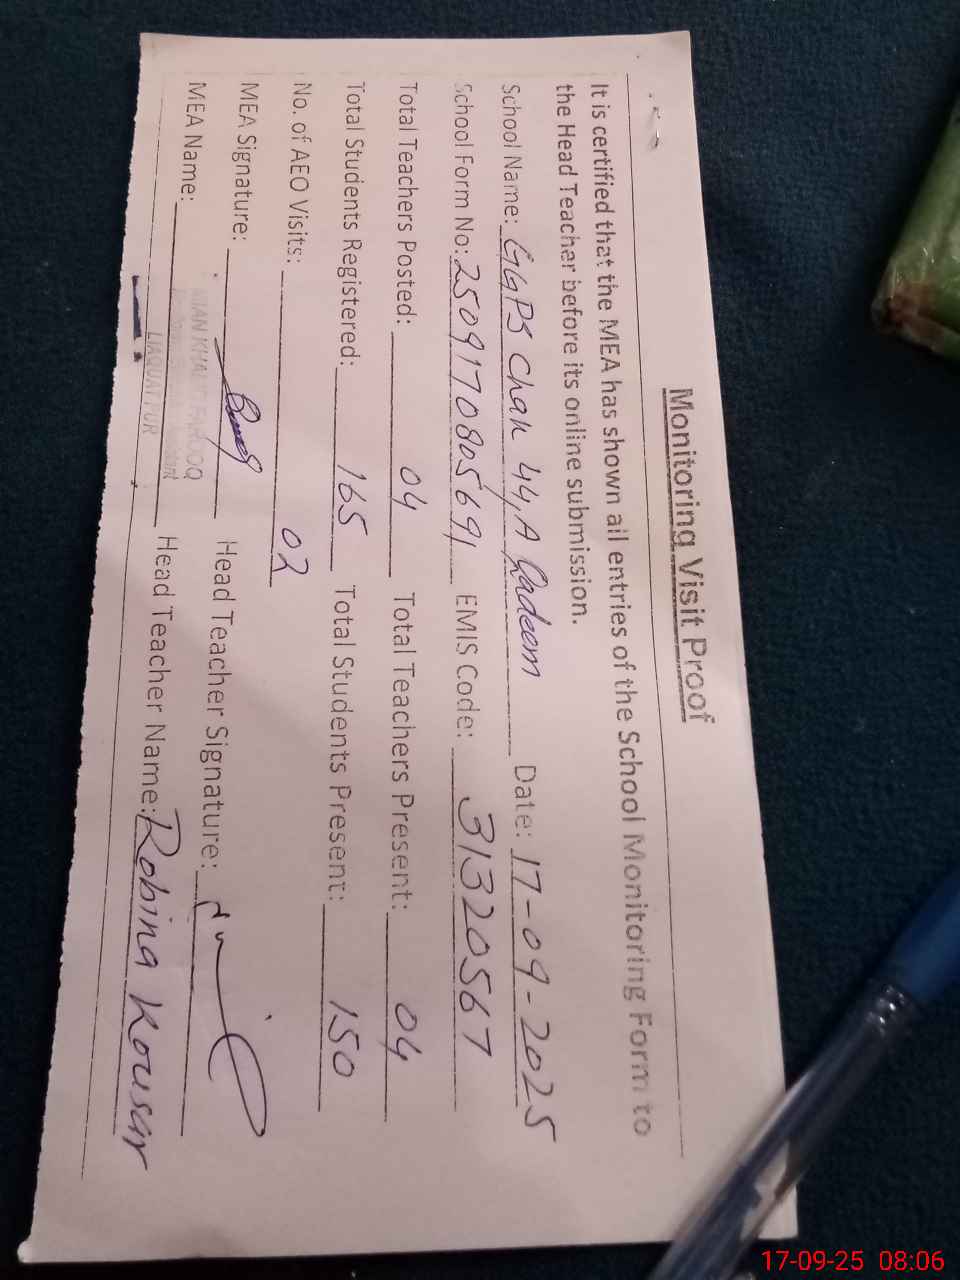 Monitoring Visit Proof
It is certified that the MEA has shown all entries of the School Monitoring Form to
the Head Teacher before its online submission.
School Name: GGPS Chak 44,A Qadeem Date: 17-09-2025
School Form No: 2509170805691 EMIS Code: 31320567
Total Teachers Posted: 04 Total Teachers Present: 04
Total Students Registered: 165 Total Students Present: 150
No. of AEO Visits: 02
MEA Signature: Head Teacher Signature:
MEA Name: Head Teacher Name: Robina Kousar
MIAN KHALID FAROOQ
LIAQUAT PUR
17-09-25 08:06